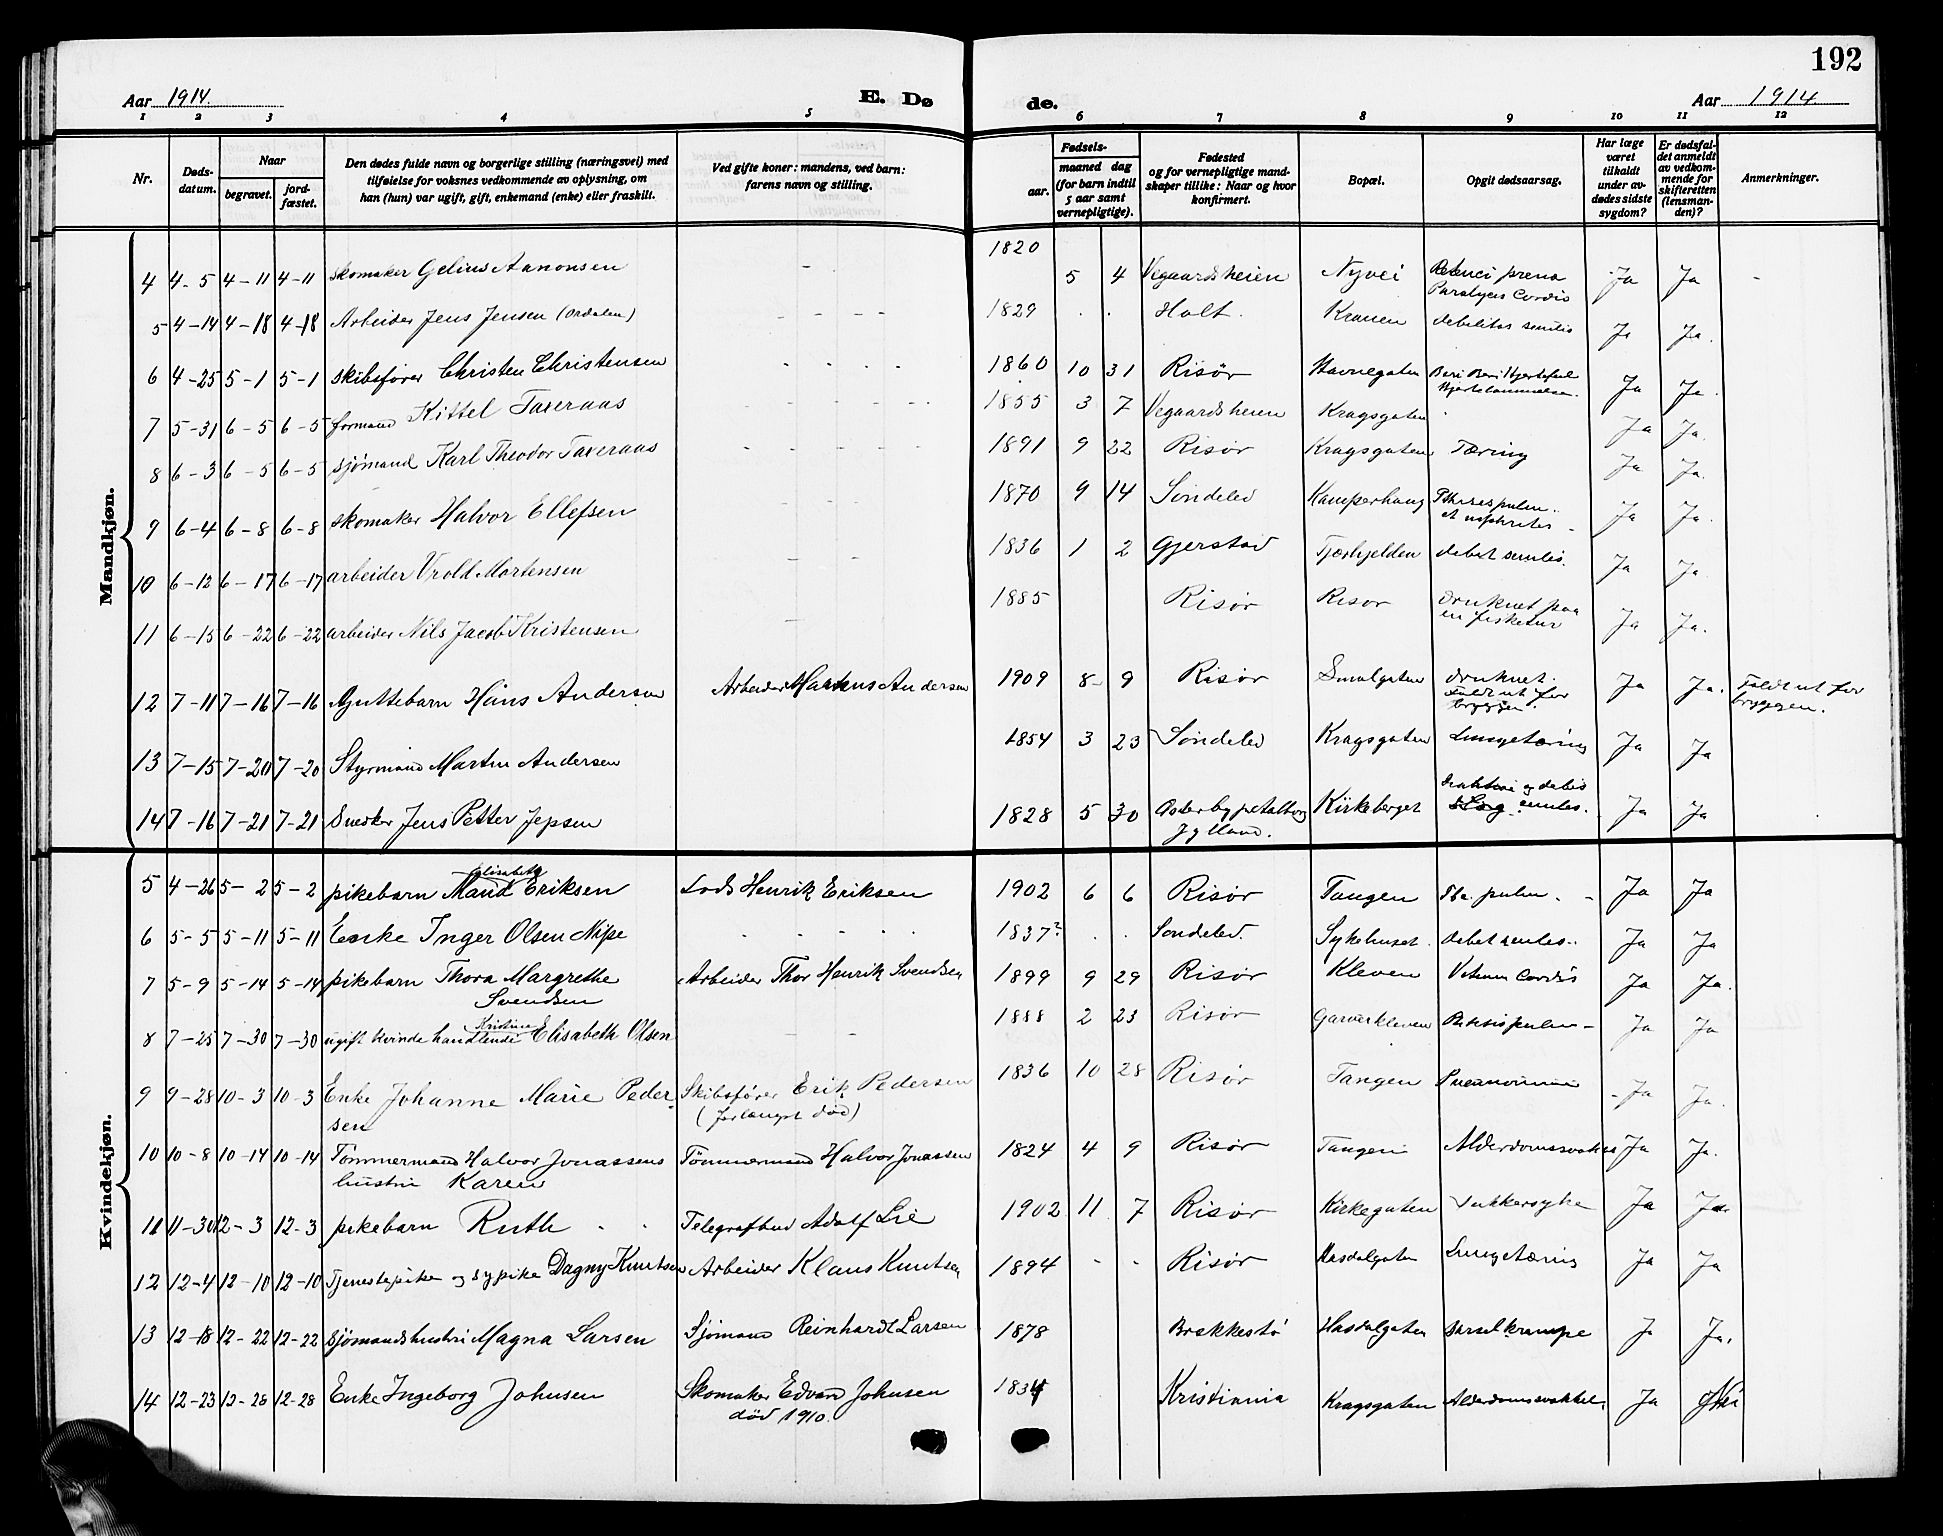 192
Aar 1914. E. Dø de. Aar 1914.
1 2 3 4 5 6 7 8 9 10 11 12
Nr. Døds-datum. Naar begravet. jord-fæstet. Den dødes fulde navn og borgerlige stilling (næringsvei) med tilføielse for voksnes vedkommende av oplysning, om han (hun) var ugift, gift, enkemand (enke) eller fraskilt. Ved gifte koner: mandens, ved barn: farens navn og stilling. Fødsels- aar. maaned dag (for barn indtil 5 aar samt vernepligtige). Fødested og for vernepligtige mand-skaper tillike: Naar og hvor konfirmert. Bopæl. Opgit dødsaarsag. Har læge været tilkaldt under av-dødes sidste sygdom? Er dødsfal-det anmeldt av vedkom-mende for skifteretten (lensman-den)? Anmerkninger.
Mandkjøn.
4 4-5 4-11 4-11 skomaker Gelius Aanonsen - 1820 5 4 Vegaardsheien Nyvei Paralyces Cordis Ja Ja -
5 4-14 4-18 4-18 Arbeider Jens Jensen (Ordalen) - - - - 1829 . . Holt. Kranen debilitas senilis Ja Ja.
6 4-25 5-1 5-1 skibsfører Christen Christensen - - - - 1860 10 31 Risør Havnegaten Beri Beri Hjertefeil Hjertelammelse. Ja Ja.
7 5-31 6-5 6-5 formand Kittel Taxeraas - - - - - 1855 3 7 Vegaardsheien Kragsgaten . Ja Ja.
8 6-3 6-5 6-5 sjømand Karl Theodor Taxeraas - - - - - 1891 9 22 Risør Kragsgaten Tæring Ja Ja.
9 6-4 6-8 6-8 skomaker Halvor Ellefsen - - 1870 9 14 Søndeled Kamperhaug Pthisis pulm. et nephrites - Ja Ja.
10 6-12 6-17 6-17 arbeider Vrold Mortensen - - 1836 1 2 Gjerstad Tjærhjelden debet senilis. Ja Ja.
11 6-15 6-22 6-22 arbeider Nils Jacob Kristensen - 1885 Risør Risør druknet paa en fisketur Ja Ja.
12 7-11 7-16 7-16 Gjuttebarn Hans Andersen Arbeider Markus Andersen 1909 8- 9 Risør Smalgaten druknet. Faldt ut for bryggen. Ja Ja. Faldt ut for bryggen.
13 7-15 7-20 7-20 Styrmand Martin Andersen 1854 3 23 Søndeled Kragsgaten Lungetæring Ja Ja
14 7-16 7-21 7-21 Snedker Jens Petter Jepsen 1828 5 30 Østerby pr Aalborg Jylland. Kirkeberget og debet senilis. Ja Ja
Kvindekjøn.
5 4-26 5-2 5-2 pikebarn Maud Elisabeth Eriksen Lods Henrik Eriksen 1902 6 6 Risør Tangen Tbc. pulm. - Ja Ja
6 5-5 5-11 5-11 Enke Inger Olsen Nipe - - - - 1837? . . Søndeled. Sykehuset. debet senilis. Ja Ja
7 5-9 5-14 5-14 pikebarn Thora Margrethe Svendsen Arbeider Thor Henrik Svendsen 1899 9 29 Risør Kleven Vitium Cordis Ja Ja.
8 7-25 7-30 7-30 ugift kvinde handlende Kristine Elisabeth Olsen - - 1888 2 23 Risør Garverkleven pulm - Ja Ja
9 9-28 10-3 10-3 Enke Johanne Marie Pedersen Skibsfører Erik Pedersen (forlængst død) 1836 10 28 Risør Tangen Pneumonia - Ja Ja.
10 10-8 10-14 10-14 Tømmermand Halvor Jonassens hustru Karen Tømmermand Halvor Jonassen 1824 4 9 Risør Tangen Alderdomssvakhet Ja Ja.
11 11-30 12-3 12-3 pikebarn Ruth - - Telegrafbud Adolf Lie 1902 11 7 Risør Kirkegaten Sukkersyke Ja Ja.
12 12-4 12-10 12-10 Tjenestepike og sypike Dagny Knutsen Arbeider Klaus Knutsen 1894 - - Risør Hasdalgaten Lungetæring Ja Ja
13 12-18 12-22 12-22 sjømandshustru Magna Larsen Sjømand Reinhardt Larsen 1878 Brekkestø Hasdalgaten Barselkrampe Ja Ja.
14 12-23 12-28 12-28 Enke Ingeborg Johnsen Skomaker Edvard Johnsen død 1910. 1834 Kristiania Kragsgaten Alderdomssvakhet. Ja Nei